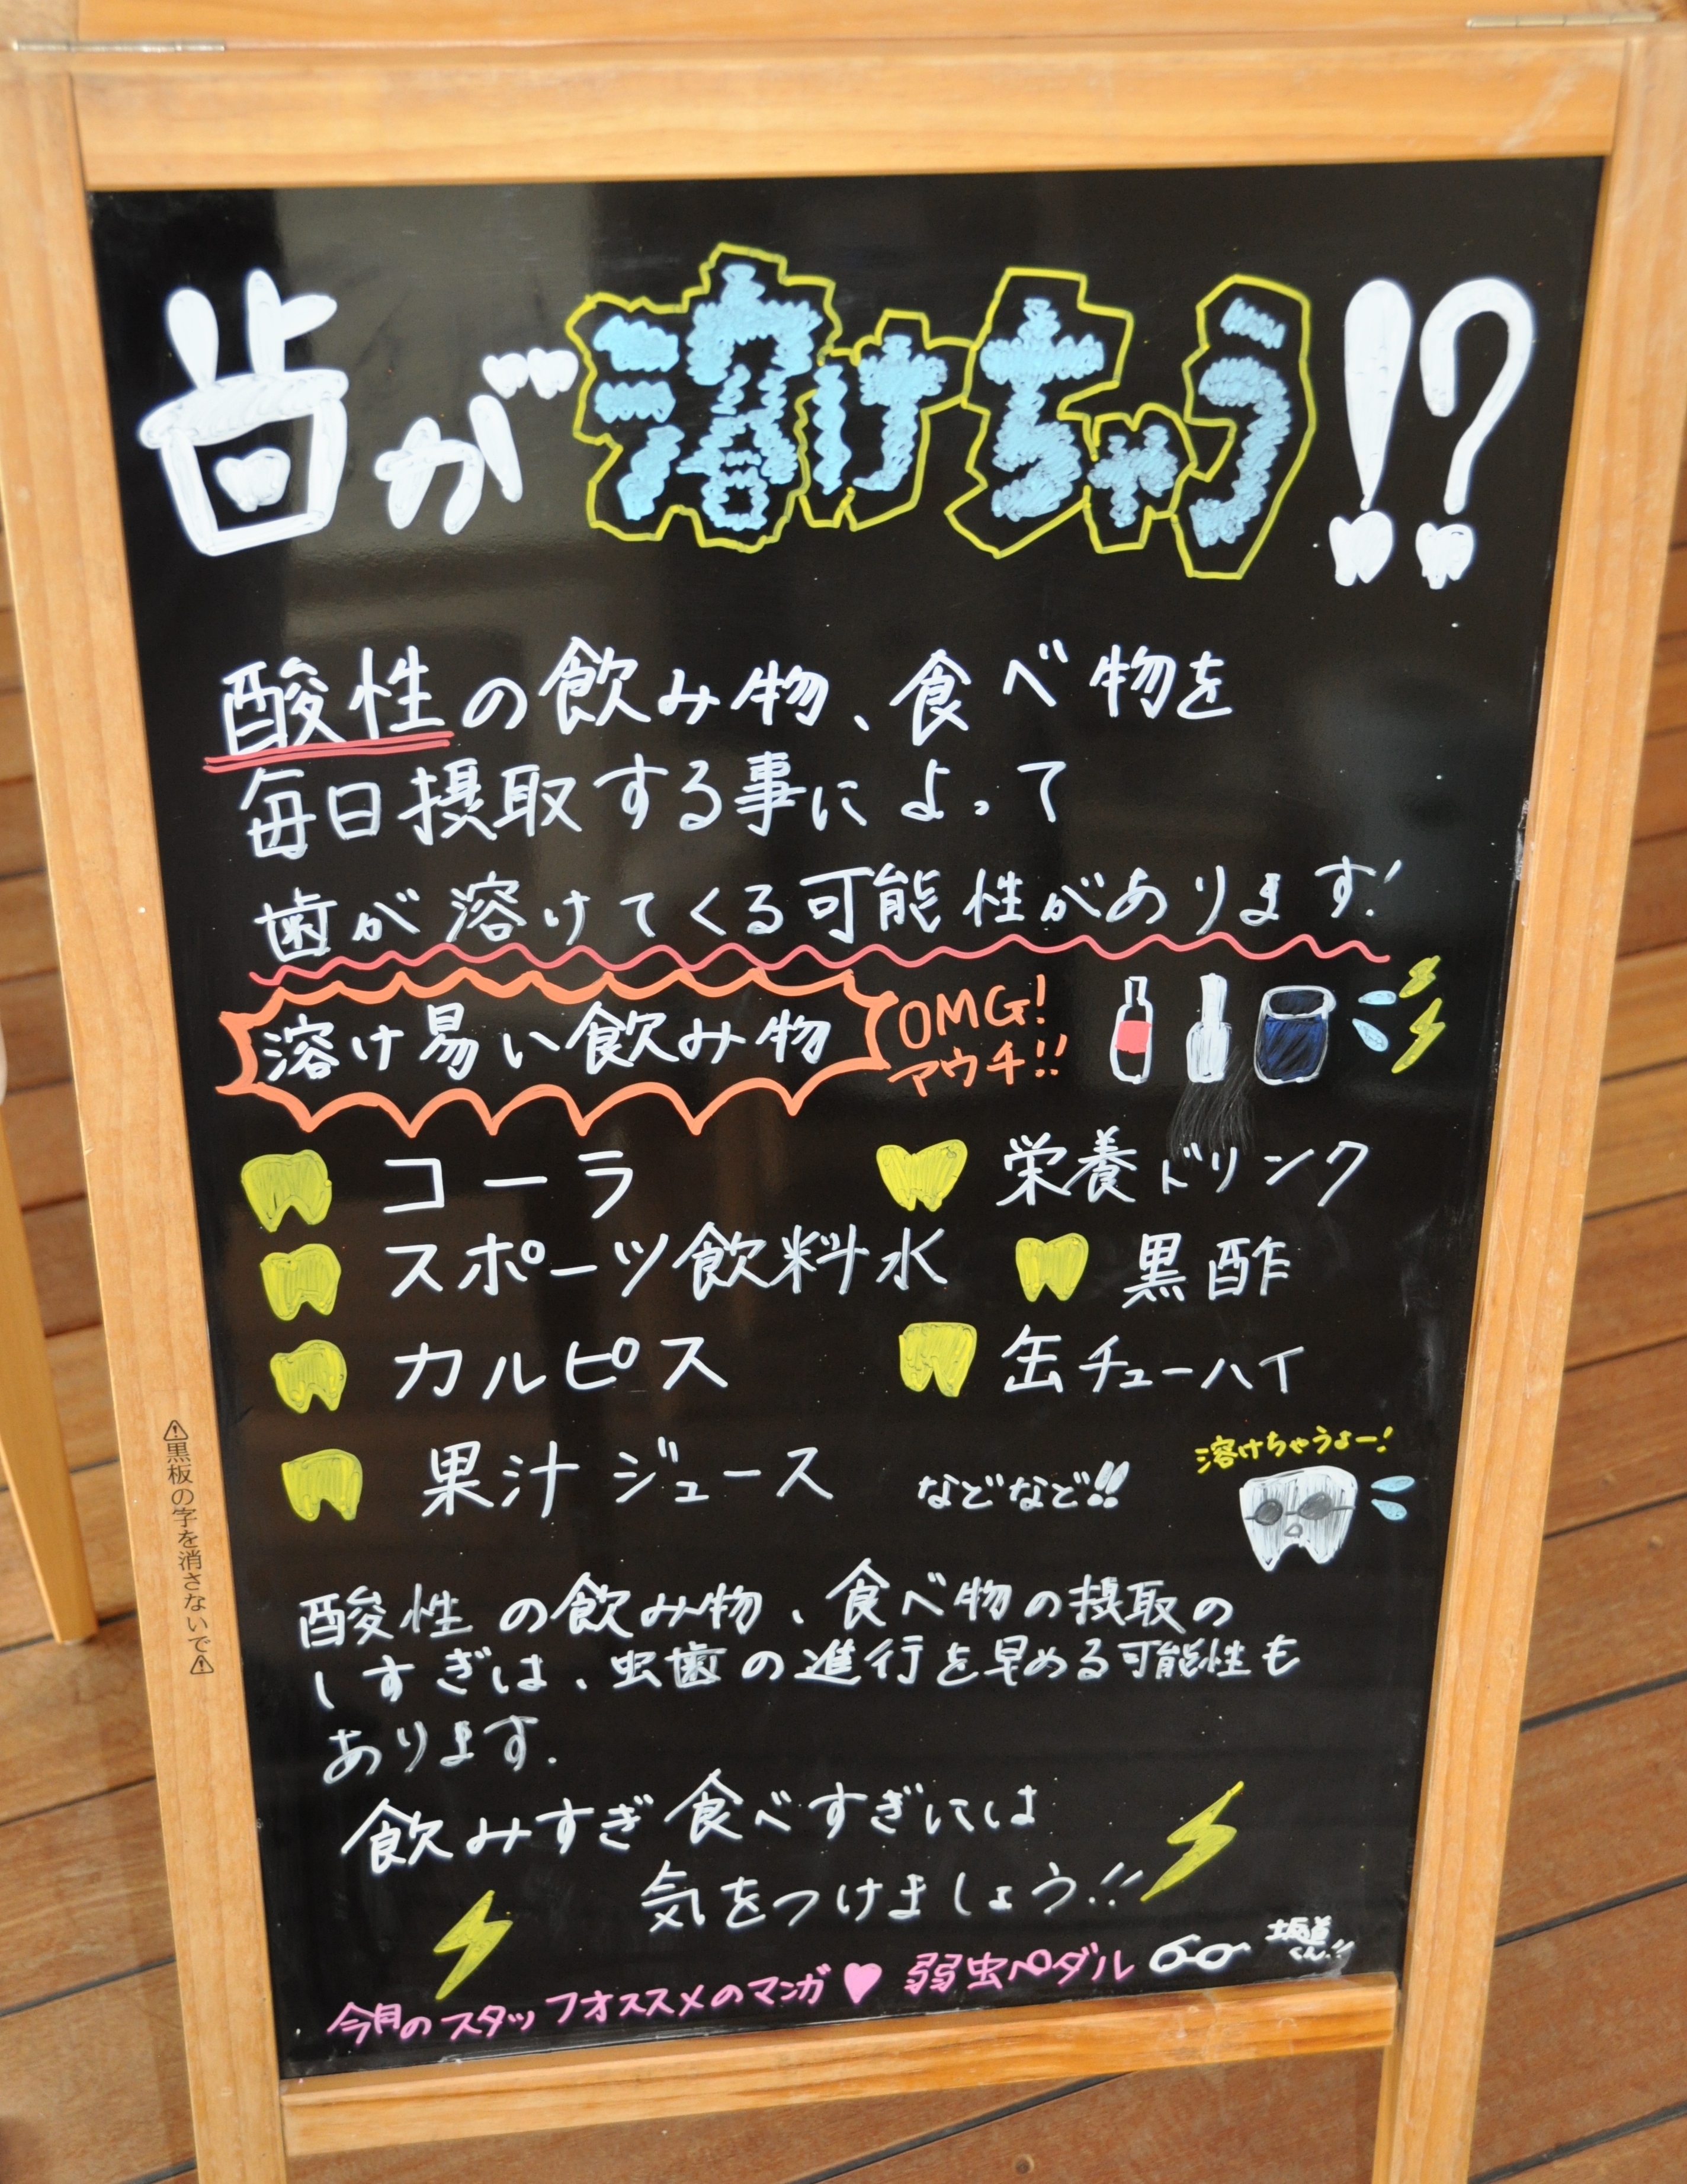 歯が溶けちゃう!?
酸性の飲み物、食べ物を
毎日摂取する事によって
歯が溶けてくる可能性があります!
溶け易い飲み物
OMG!
アウチ!!
コーラ
栄養ドリンク
スポーツ飲料水
黒酢
カルピス
缶チューハイ
果汁ジュース
などなど!!
溶けちゃうよー!
酸性の飲み物、食べ物の摂取の
しすぎは、虫歯の進行を早める可能性も
あります.
飲みすぎ食べすぎには
気をつけましょう!!
今月のスタッフオススメのマンガ♥ 弱虫ペダル
坂道
くん!!
⚠黒板の字を消さないで⚠